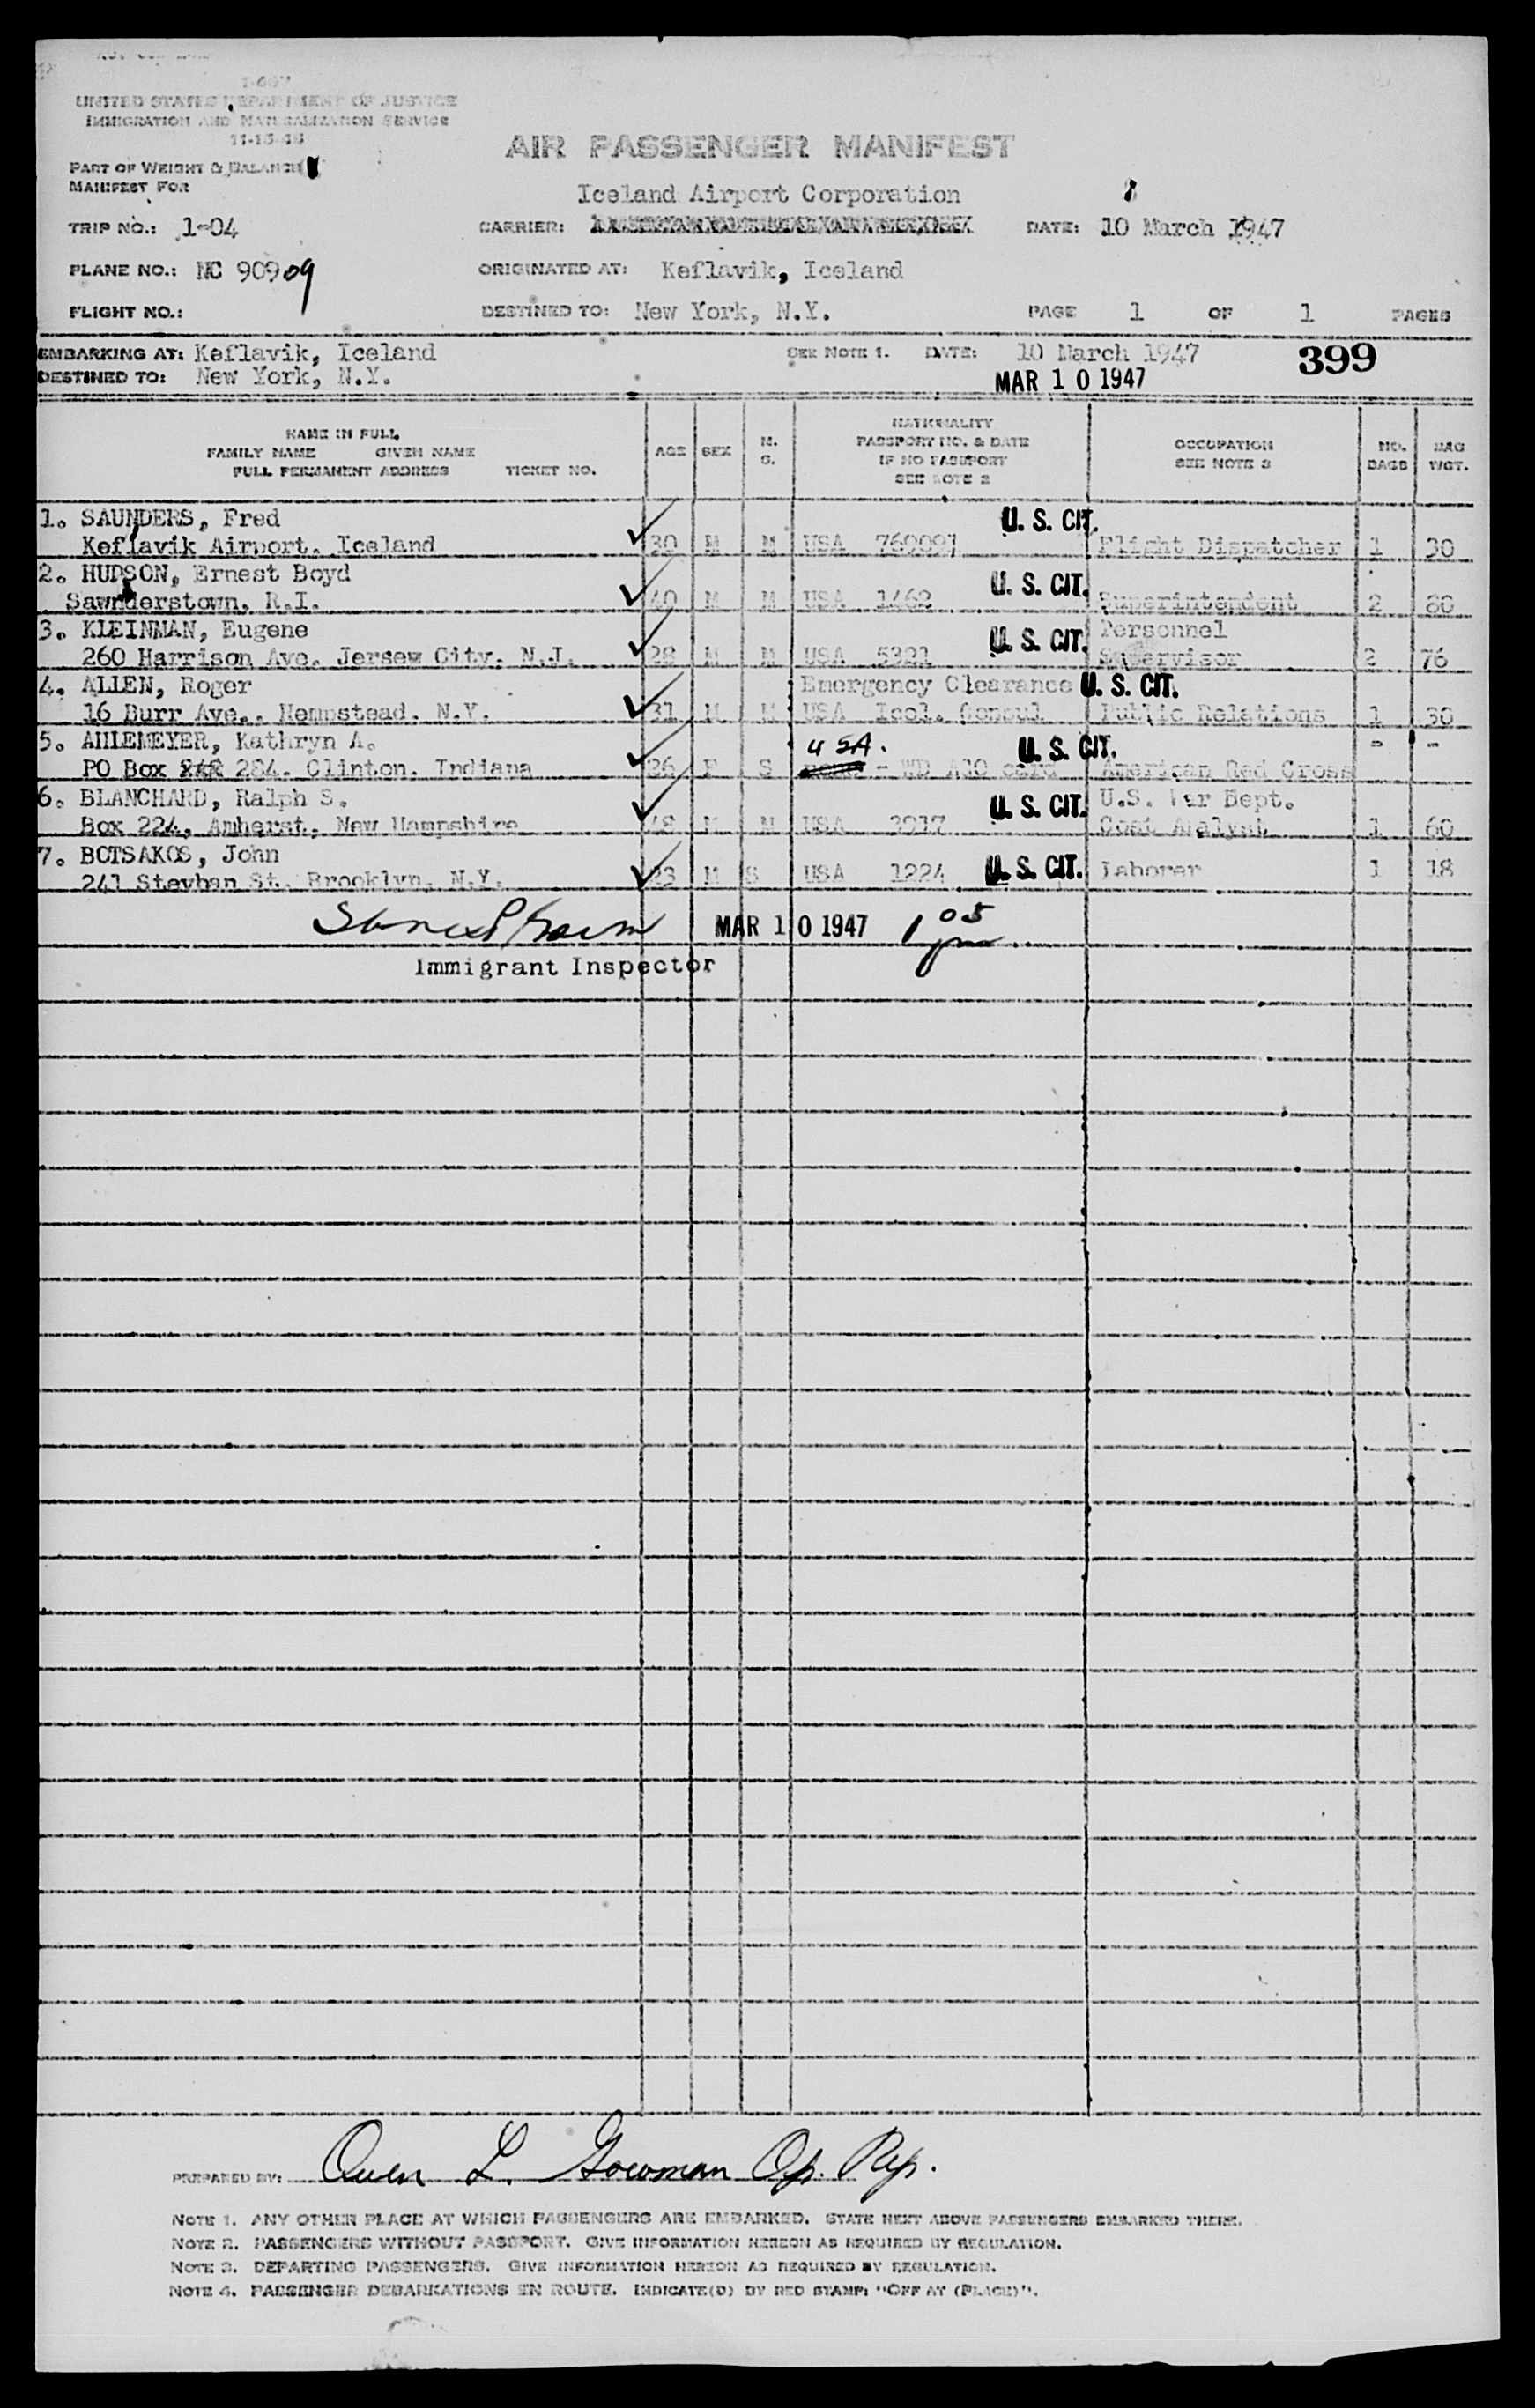 UNITED STATES DEPARTMENT OF JUSTICE
IMMIGRATION AND NATURALIZATION SERVICE
11-15-46
PART OF WEIGHT & BALANCE
MANIFEST FOR
AIR PASSENGER MANIFEST
Iceland Airport Corporation
TRIP NO.: 1-04 CARRIER: DATE: 10 March 1947
PLANE NO.: NC 90909 ORIGINATED AT: Keflavik, Iceland
FLIGHT NO.: DESTINED TO: New York, N.Y. PAGE 1 OF 1 PAGES
EMBARKING AT: Keflavik, Iceland SEE NOTE 1. DATE: 10 March 1947 399
DESTINED TO: New York, N.Y. MAR 10 1947
NAME IN FULL
FAMILY NAME GIVEN NAME
FULL PERMANENT ADDRESS TICKET NO.
AGE SEX M. S.
NATIONALITY
PASSPORT NO. & DATE
IF NO PASSPORT
SEE NOTE 2
OCCUPATION
SEE NOTE 3
NO. BAGS
BAG WGT.
1. SAUNDERS, Fred U. S. CIT.
Keflavik Airport, Iceland 30 M M USA 769091 Flight Dispatcher 1 30
2. HUDSON, Ernest Boyd U. S. CIT.
Sawnderstown, R.I. 40 M M USA 1462 Superintendent 2 80
3. KLEINMAN, Eugene U. S. CIT. Personnel
260 Harrison Ave. Jersew City, N.J. 28 M M USA 5321 Supervisor 2 76
4. ALLEN, Roger Emergency Clearance U. S. CIT.
16 Burr Ave., Hempstead, N.Y. 31 M M USA Icel. Consul Public Relations 1 30
5. AHLEMEYER, Kathryn A. USA. U. S. CIT. - -
PO Box 284, Clinton, Indiana 26 F S - WD AGO card American Red Cross
6. BLANCHARD, Ralph S. U. S. CIT. U.S. War Dept.
Box 224, Amherst, New Hampshire 48 M M USA 2917 Cost Analyst 1 60
7. BOTSAKOS, John
241 Steyhan St. Brooklyn, N.Y. 23 M S USA 1224 U. S. CIT. Laborer 1 18
MAR 10 1947 1 05 pm
Immigrant Inspector
PREPARED BY: Owen L. Gowman Op. Rep.
NOTE 1. ANY OTHER PLACE AT WHICH PASSENGERS ARE EMBARKED. STATE NEXT ABOVE PASSENGERS EMBARKED THERE.
NOTE 2. PASSENGERS WITHOUT PASSPORT. GIVE INFORMATION HEREON AS REQUIRED BY REGULATION.
NOTE 3. DEPARTING PASSENGERS. GIVE INFORMATION HEREON AS REQUIRED BY REGULATION.
NOTE 4. PASSENGER DEBARKATIONS EN ROUTE. INDICATE(D) BY RED STAMP: "OFF AT (PLACE)".